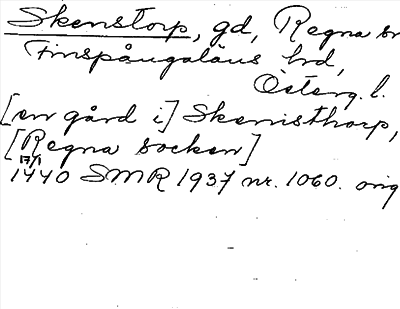 Skenstorp, gd, Regna sn
Finspångaläns hd,
Österg. l.
[en gård i] Skenisthorp,
[Regna socken]
17/1
1440 SMR 1937 nr. 1060. orig